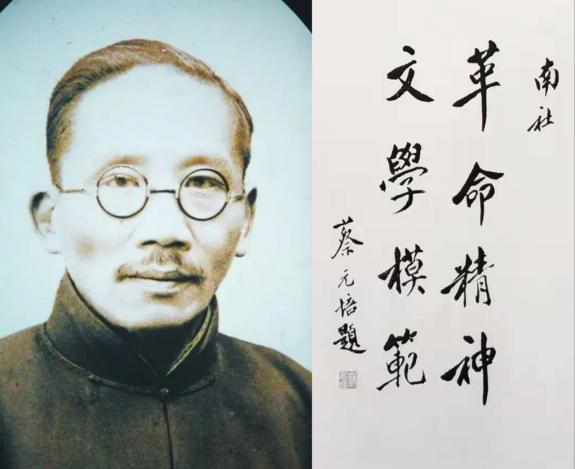 南社
革命精神
文學模範
蔡元培題